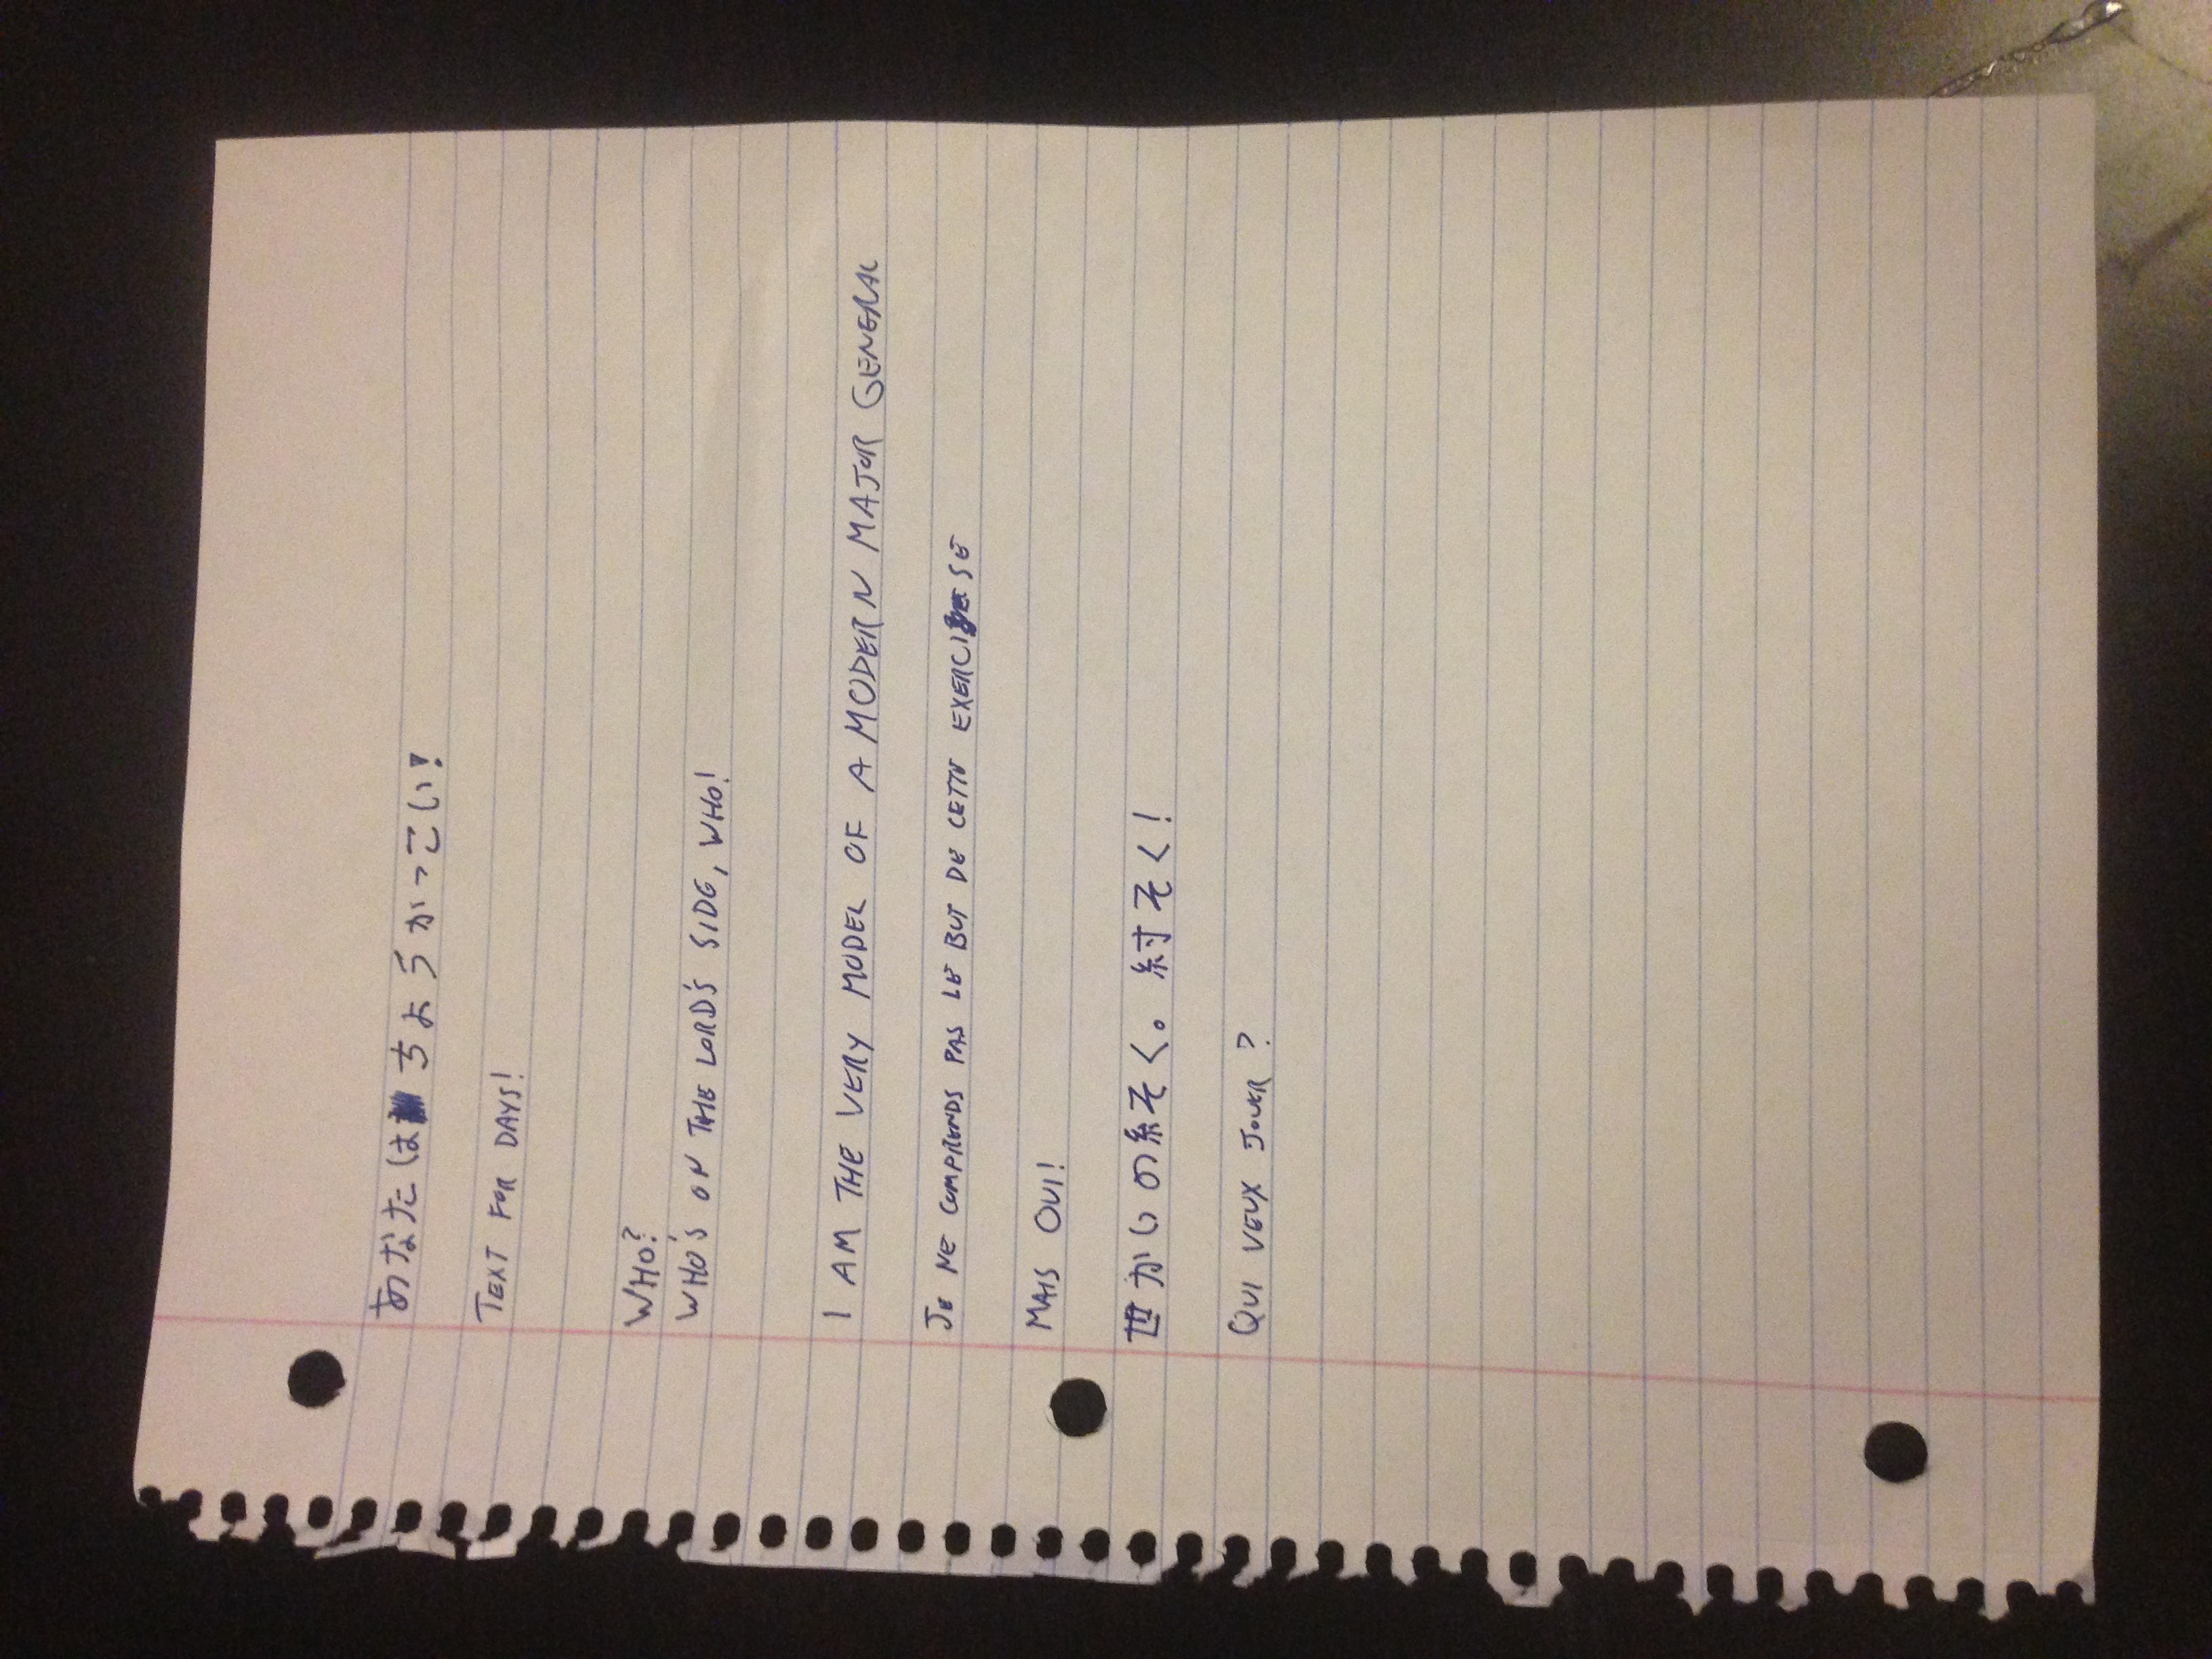 あなたは ちょうかっこい!
TEXT FOR DAYS!
WHO?
WHO'S ON THE LORD'S SIDE, WHO!
I AM THE VERY MODEL OF A MODERN MAJOR GENERAL
JE NE COMPRENDS PAS LE BUT DE CETTE EXERCISE
MAIS OUI!
世かいの糸そく。紂そく!
QUI VEUX JOUER ?